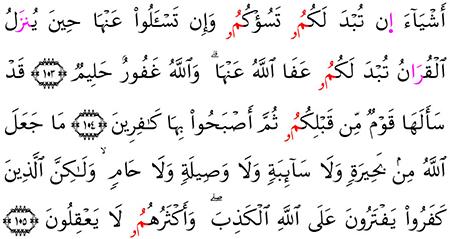 أَشْيَآءَ اِ۪ن تُبْدَ لَكُمُۥ تَسُؤْكُمُۥ وَإِن تَسْـَٔلُوا۟ عَنْهَا حِينَ يُنزَلُ
ٱلْقُرَانُ تُبْدَ لَكُمُۥ عَفَا ٱللَّهُ عَنْهَا ۗ وَٱللَّهُ غَفُورٌ حَلِيمٌ ١٠٣ قَدْ
سَأَلَهَا قَوْمٌ مِّن قَبْلِكُمُۥ ثُمَّ أَصْبَحُوا۟ بِهَا كَـٰفِرِينَ ١٠٤ مَا جَعَلَ
ٱللَّهُ مِنۢ بَحِيرَةٍ وَلَا سَآئِبَةٍ وَلَا وَصِيلَةٍ وَلَا حَامٍ ۙ وَلَـٰكِنَّ ٱلَّذِينَ
كَفَرُوا۟ يَفْتَرُونَ عَلَى ٱللَّهِ ٱلْكَذِبَ ۖ وَأَكْثَرُهُمُۥ لَا يَعْقِلُونَ ١٠٥